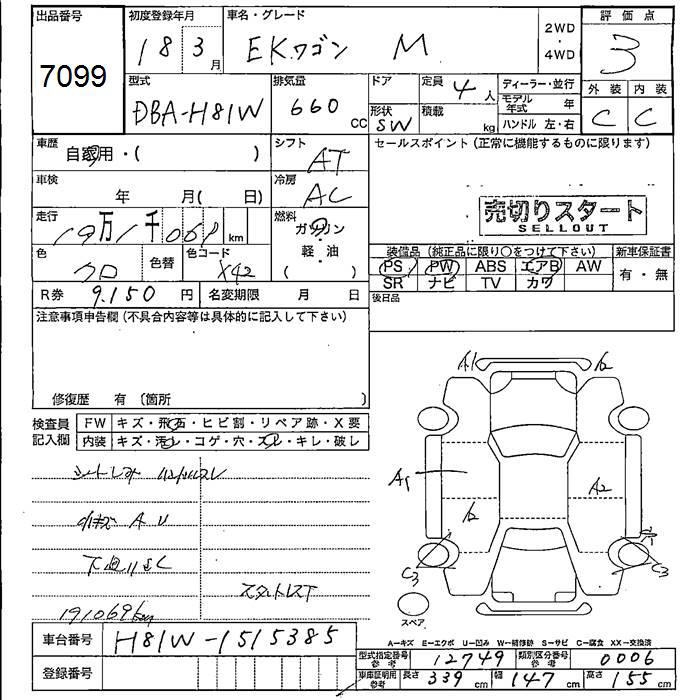 出品番号
7099
初度登録年月
18 3月
車名・グレード
EKワゴン M
2WD
・
4WD
評価点
3
型式
DBA-H81W
排気量
660 CC
ドア
形状
SW
定員
4人
積載
kg
ディーラー・並行
モデル年式 年
ハンドル 左・右
外装 内装
C C
車歴
自家用・( )
シフト
AT
セールスポイント (正常に機能するものに限ります)
売切りスタート
SELLOUT
車検
年 月( 日)
冷房
AC
走行
19万1千069km
燃料
ガソリン
・
軽・油
( )
色
クロ
色替
色コード
X42
装備品 (純正品に限り○をつけて下さい)
新車保証書
PS PW ABS エアB AW
SR ナビ TV カワ
有・無
R券 9.150円
名変期限 月 日
後日品
注意事項申告欄 (不具合内容等は具体的に記入して下さい)
修復歴 有 (箇所 )
検査員
記入欄
FW キズ・飛石・ヒビ割・リペア跡・X要
内装 キズ・汚レ・コゲ・穴・スレ・キレ・破レ
小キズ A U
下廻りSC
スタットレスT
191069km
A1
A1
A2
C3
C3
スペア
A―キズ E―エクボ U―凹み W―補修跡 S―サビ C―腐食 XX―交換済
車台番号 H81W-1515385
登録番号
型式指定番号
参考
12749
類別区分番号
参考
0006
車庫証明用
参考
長さ 339cm 幅 147cm 高さ 155cm